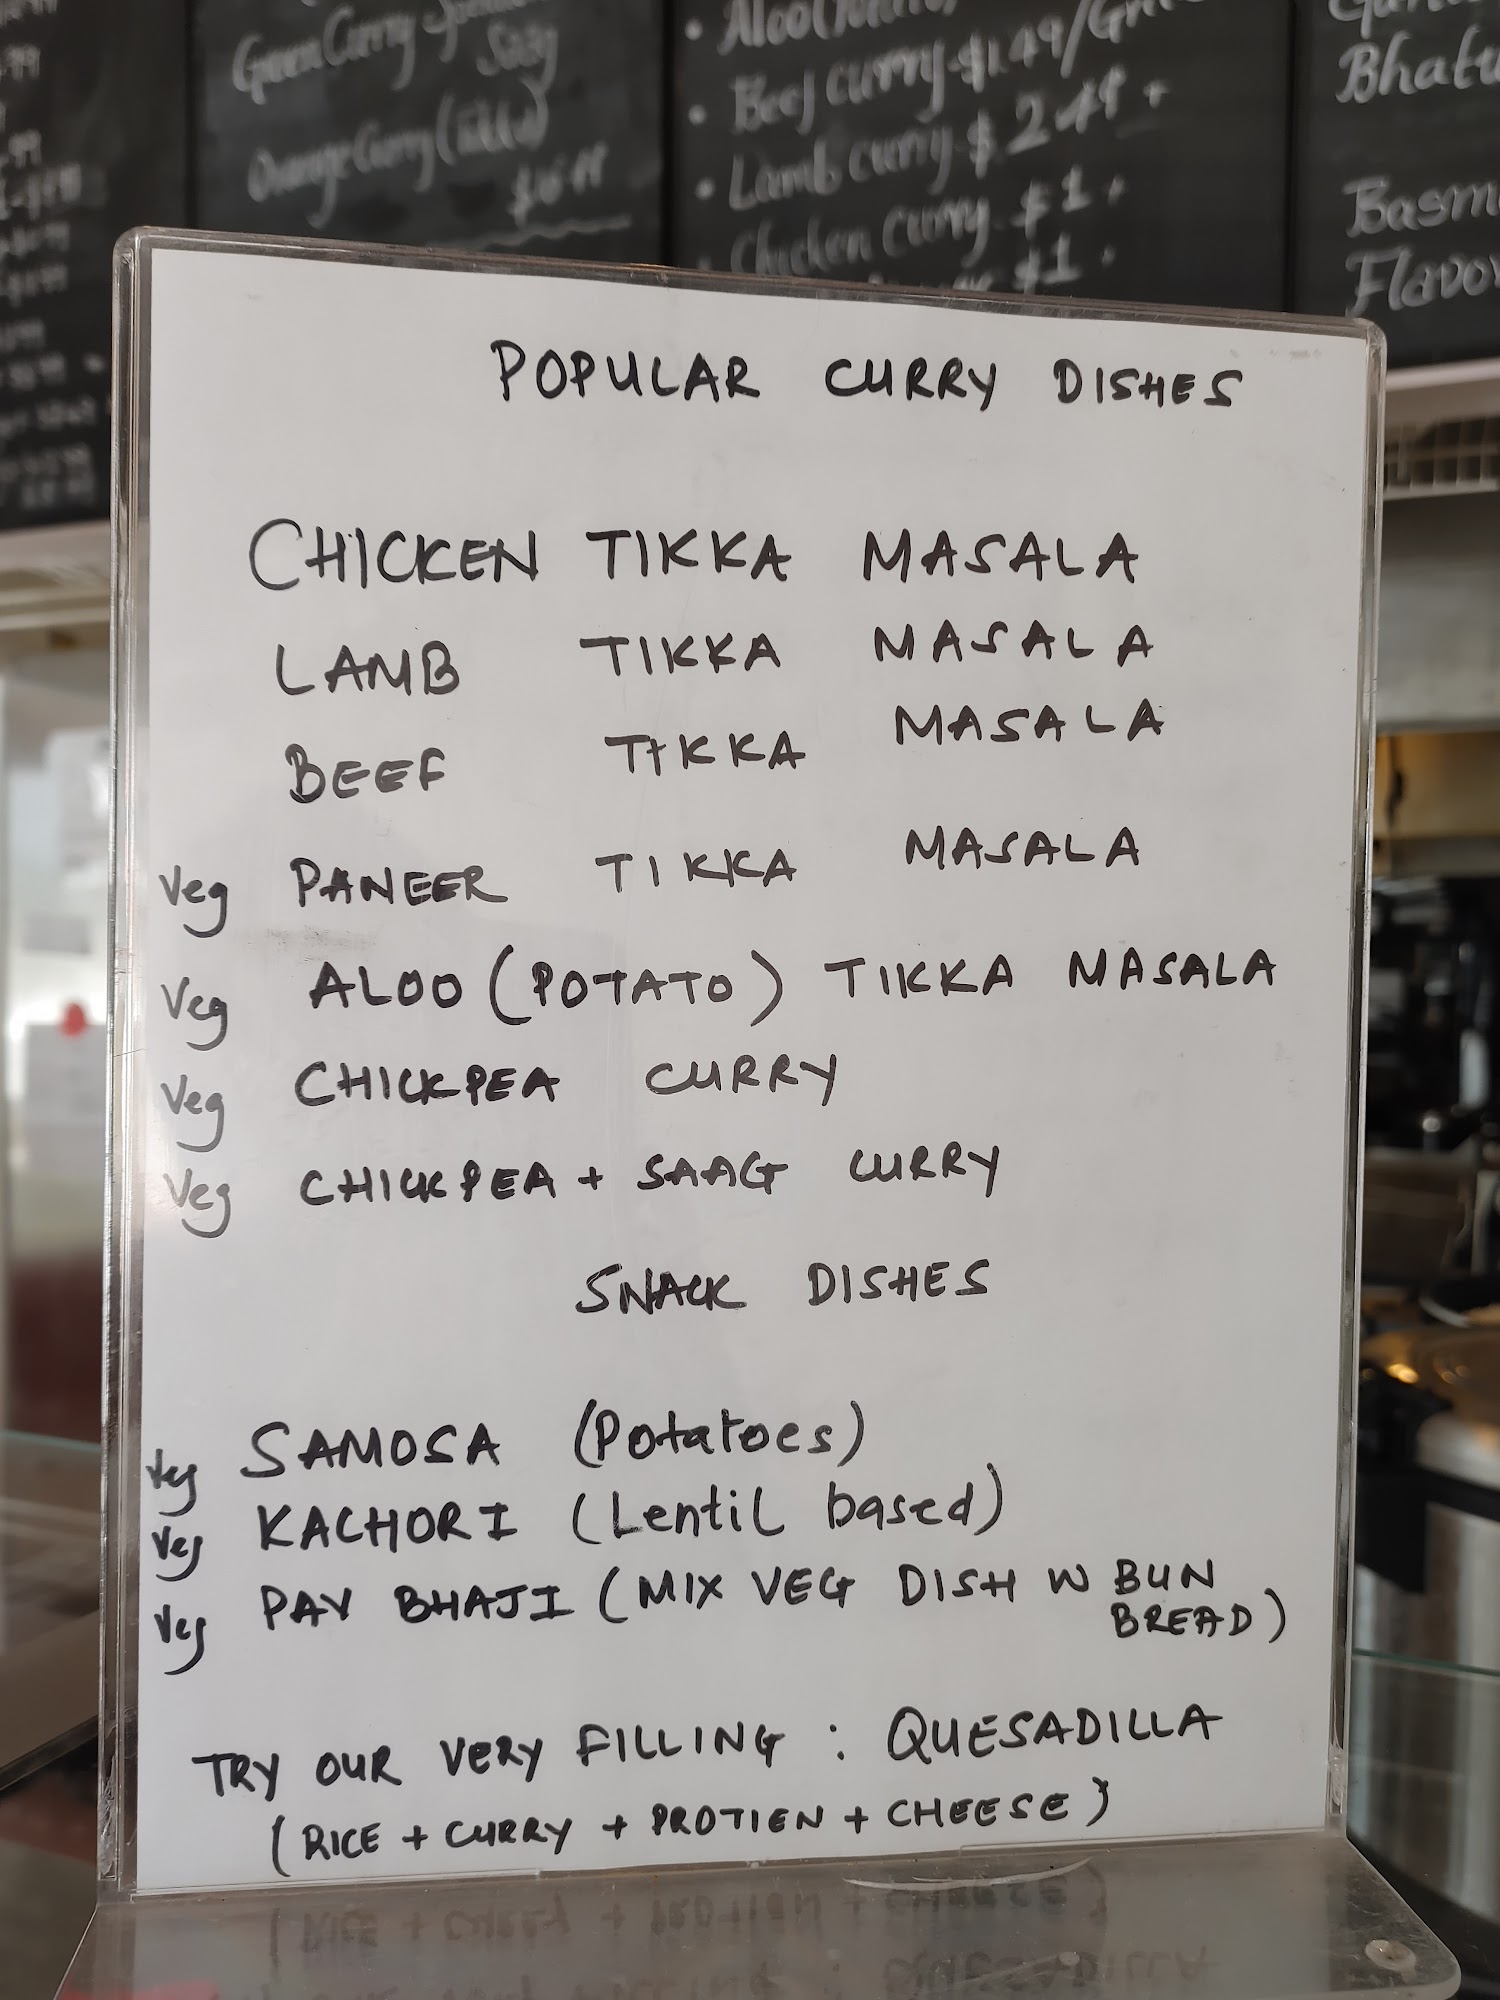 Green Curry
Orange Curry (
Beef curry $1.49/
Lamb curry $2.49+
Chicken curry $1+
$1
Flavo
POPULAR CURRY DISHES
CHICKEN TIKKA MASALA
LAMB TIKKA MASALA
BEEF TIKKA MASALA
Veg PANEER TIKKA MASALA
Veg ALOO (POTATO) TIKKA MASALA
Veg CHICKPEA CURRY
Veg CHICKPEA + SAAG CURRY
SNACK DISHES
Veg SAMOSA (Potatoes)
Veg KACHORI (Lentil based)
Veg PAV BHAJI (MIX VEG DISH W BUN
BREAD)
TRY OUR VERY FILLING : QUESADILLA
(RICE + CURRY + PROTIEN + CHEESE)